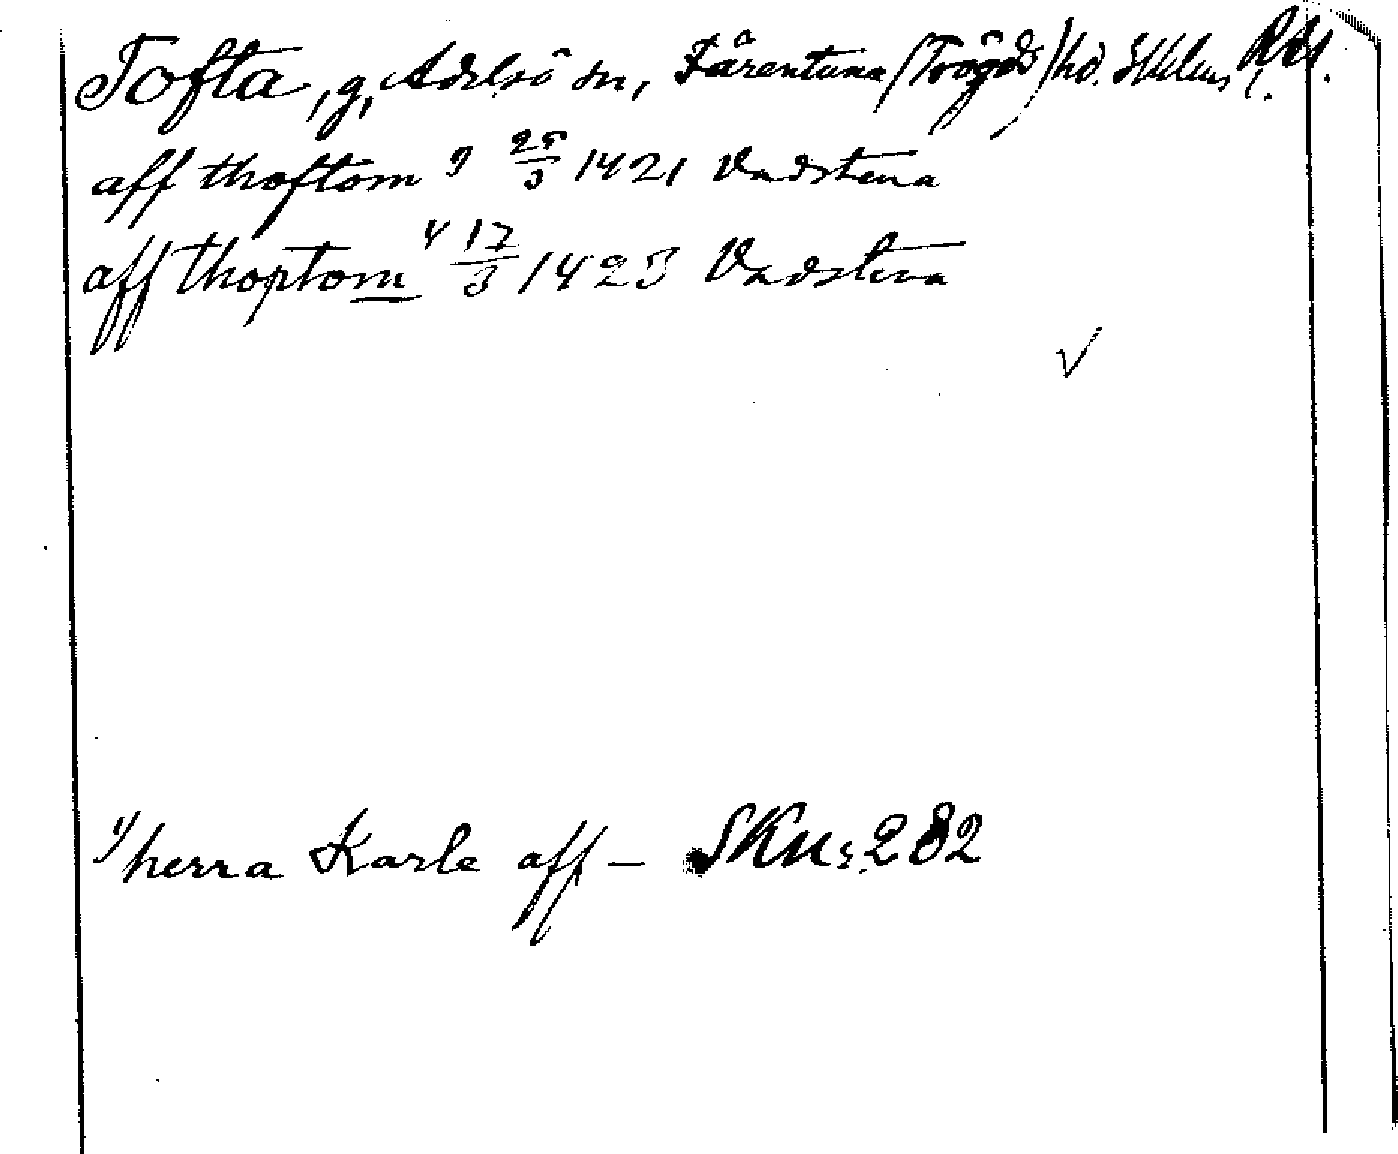 Tofta, g, Adelsö sn, Färentuna (Trögds) hd. Sthlms RA.
aff thoftom 1) 25/3 1421 Vadstena
aff thoptom 1) 17/3 1423 Vadstena
√
1) herra Karle aff – SKUs. 282